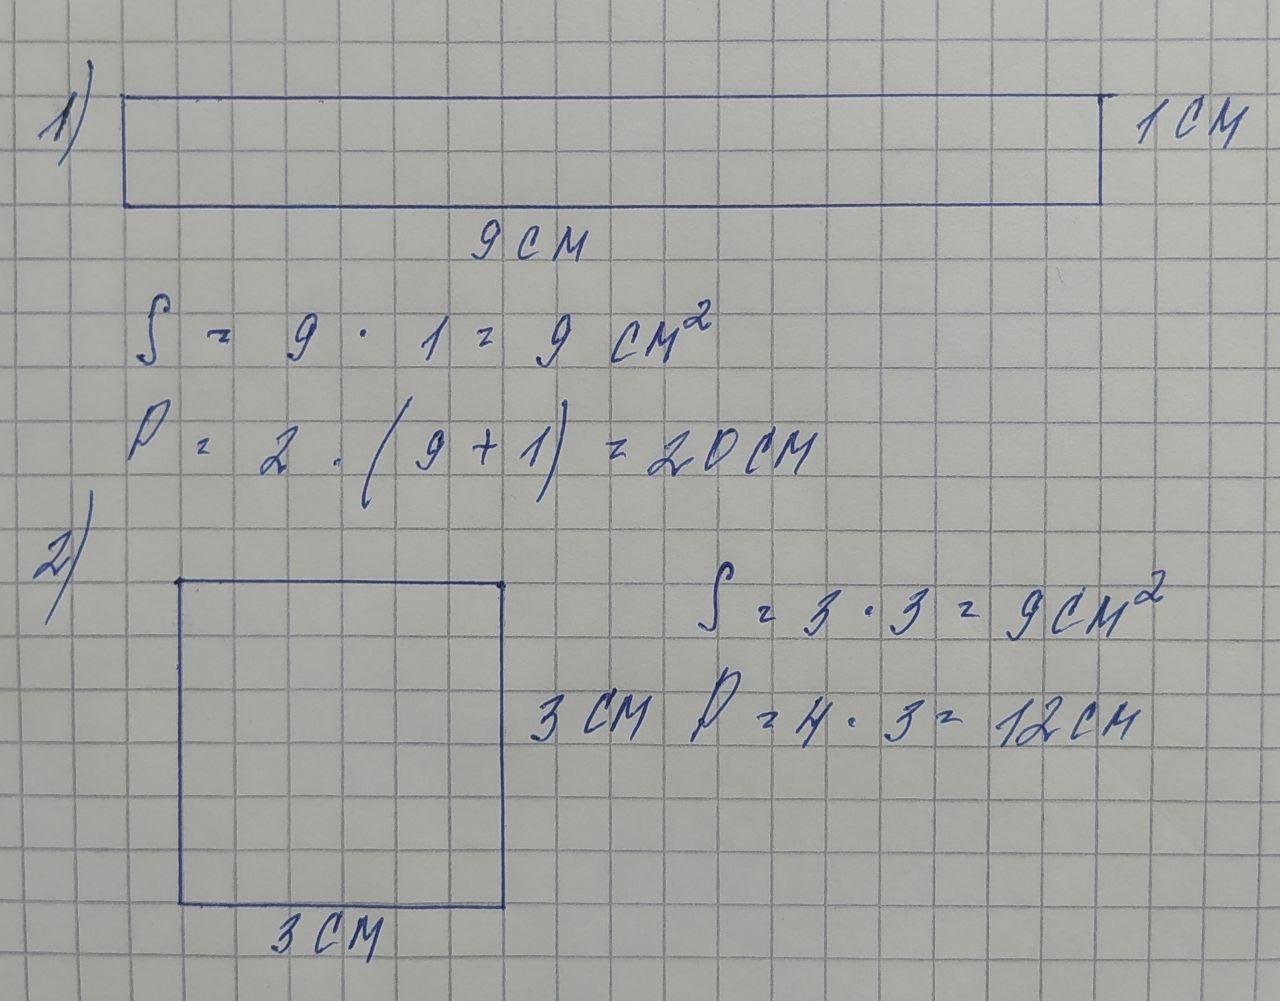 1)
1 см
9 см
S = 9 · 1 = 9 см²
P = 2 · (9 + 1) = 20 см
2)
S = 3 · 3 = 9 см²
3 см
P = 4 · 3 = 12 см
3 см